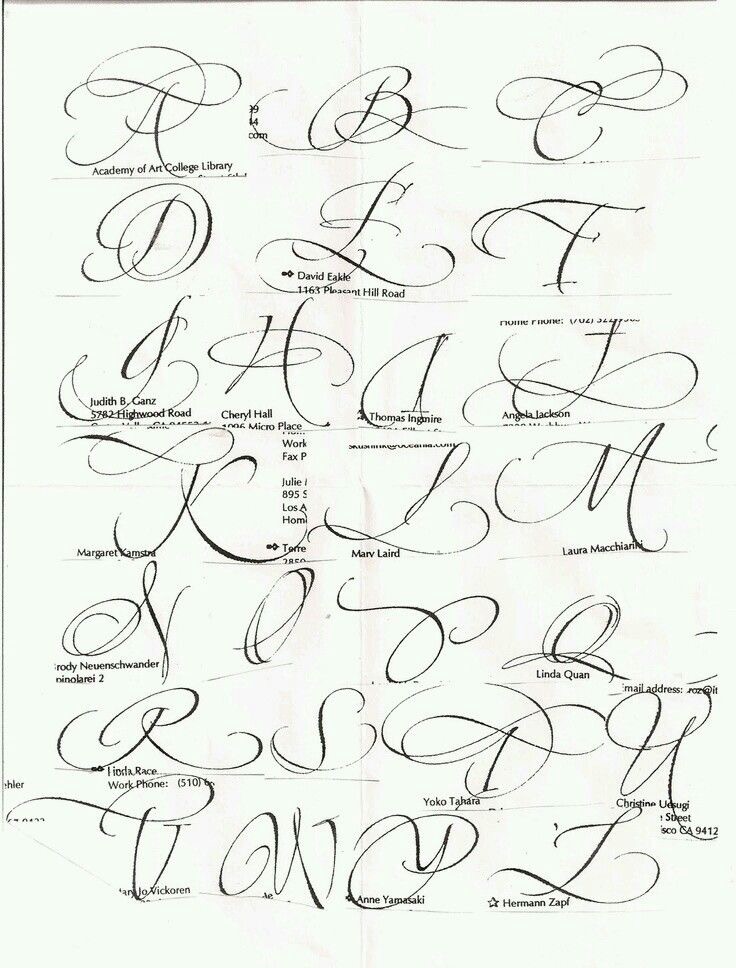 A B C
39
14
com
Academy of Art College Library
D E F
David Eakle
1163 Pleasant Hill Road
G H I J
Home Phone: (702)
Judith B. Ganz
5782 Highwood Road
Cheryl Hall
1096 Micro Place
Thomas Ingmire
Angela Jackson
K L M
Work
Fax P
Julie
895 S
Los A
Hom
Terre
2850
Margaret Kamstra
Mary Laird
Laura Macchiarini
N O P Q
rody Neuenschwander
pinolarei 2
Linda Quan
Email address: roz@it
R S T U
Linda Race
Work Phone: (510)
ehler
Yoko Tahara
Christine Uesugi
Street
isco CA 9412
V W Y Z
Jo Vickoren
Anne Yamasaki
Hermann Zapf